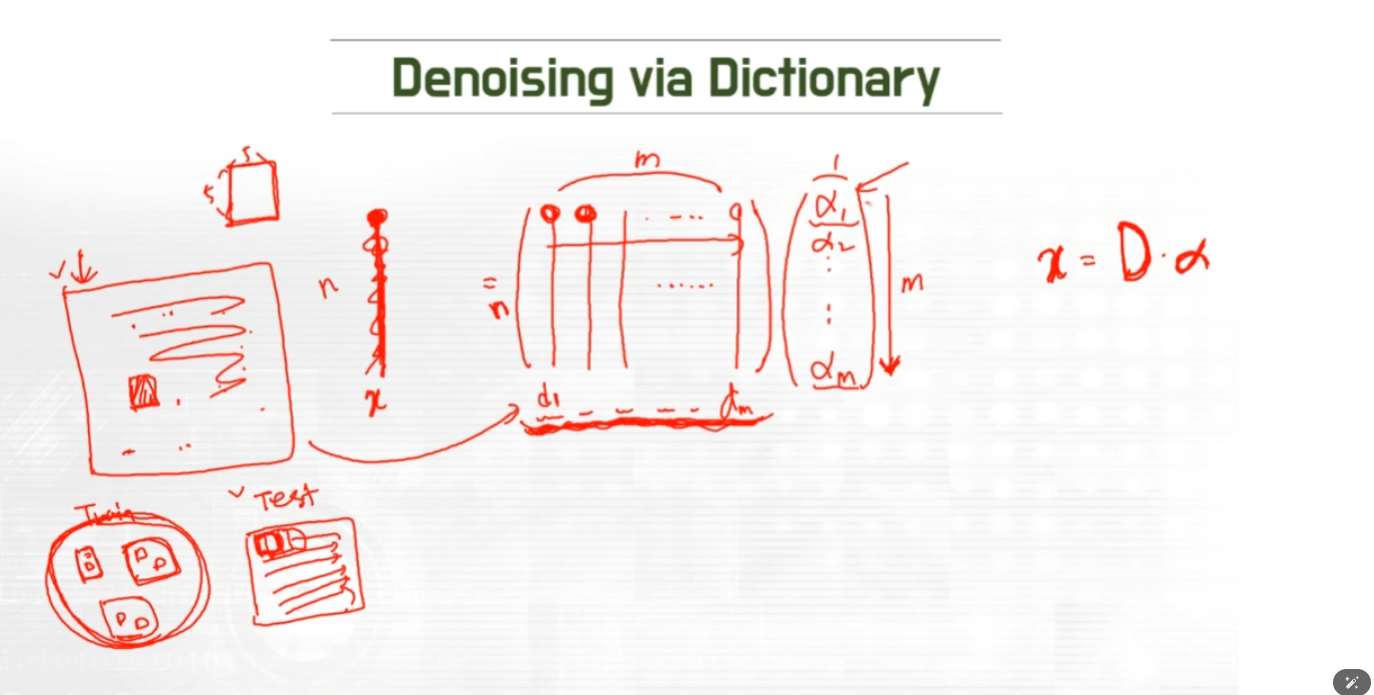 Denoising via Dictionary
5
5
m
1
n
x
=
n
. - - . .
. . . . . .
d1 - - - - dm
α1
α2
:
:
αm
m
x = D · α
Train
✓ Test